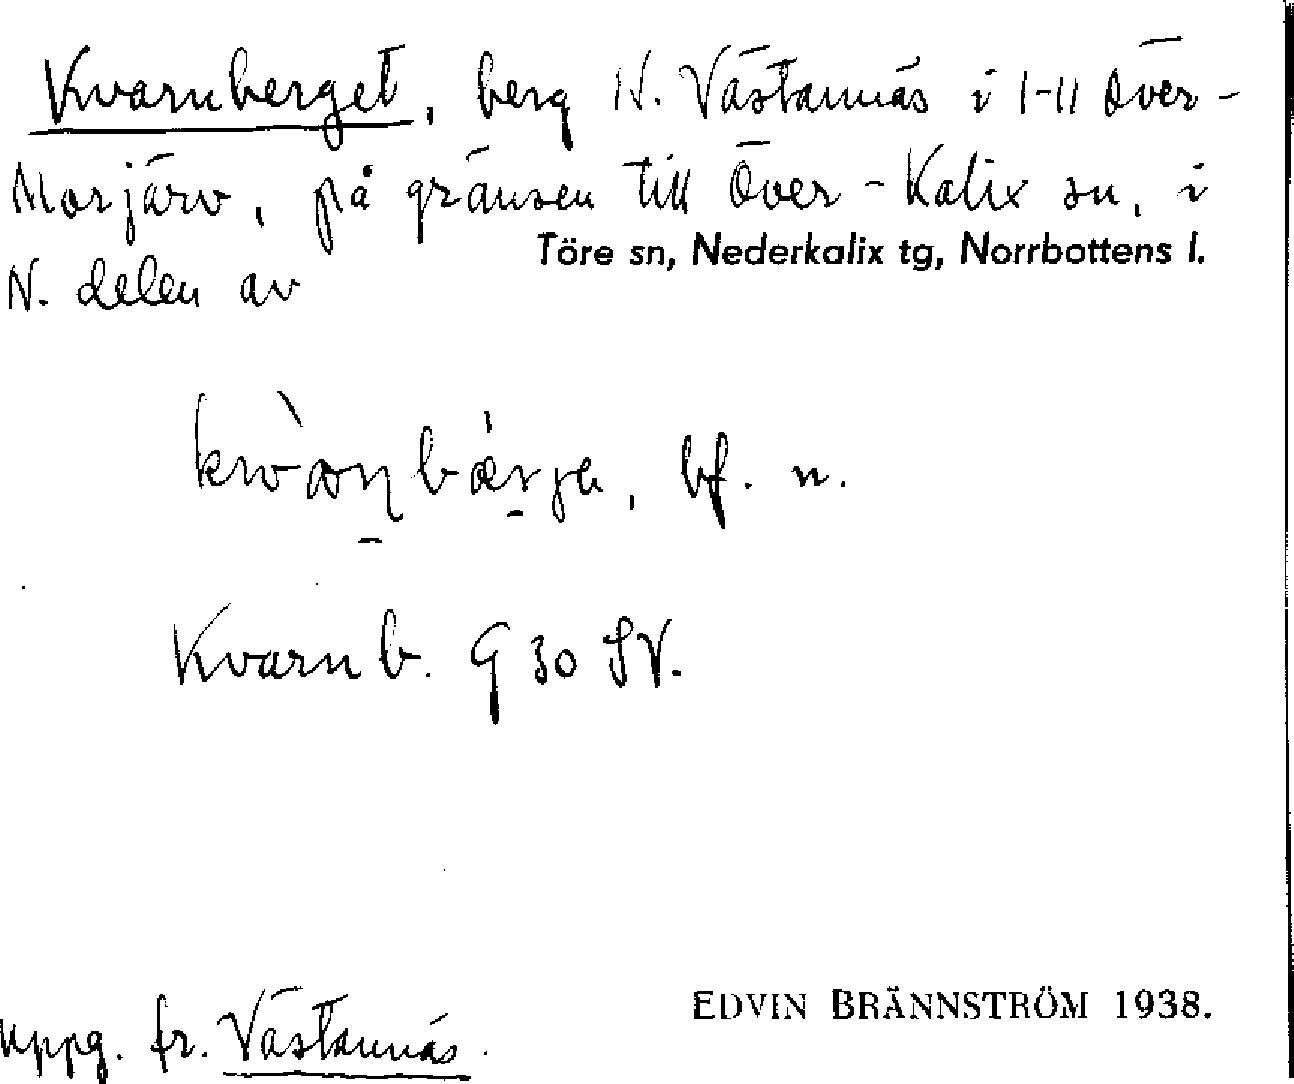 Kvarnberget, berg N. Västannäs i 1-11 Över-
Morjärv, på gränsen till Över-Kalix sn, i
Töre sn, Nederkalix tg, Norrbottens l.
N. delen av
bf. n.
Kvarnb. G 30 SV.
EDVIN BRÄNNSTRÖM 1938.
uppg. fr. Västannäs.